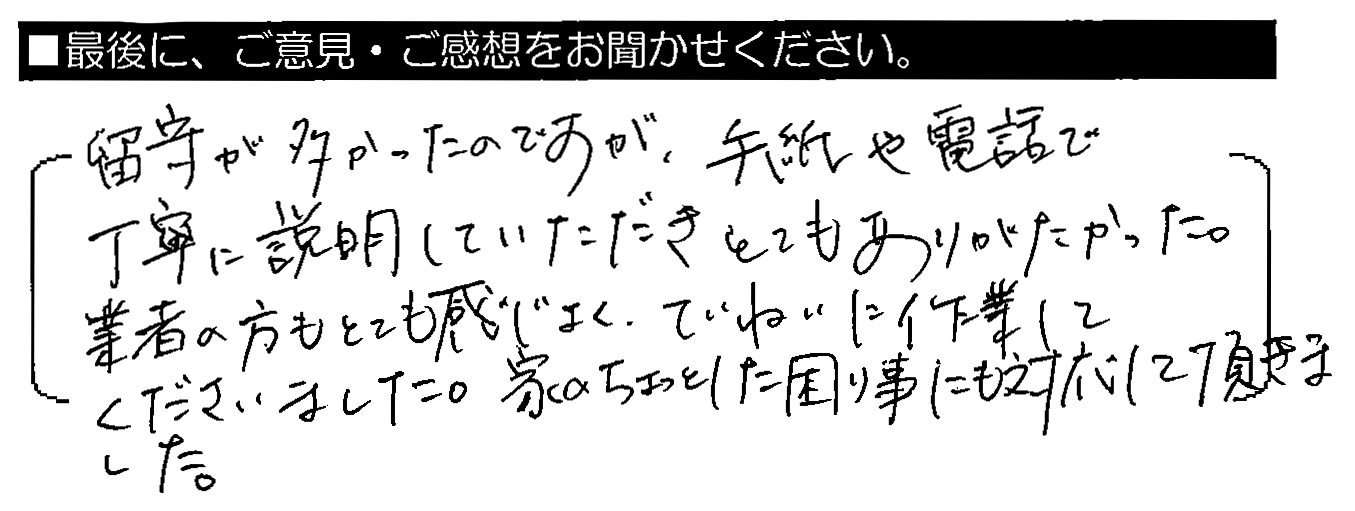 ■最後に、ご意見・ご感想をお聞かせください。
留守が多かったのですが、手紙や電話で
丁寧に説明していただきとてもありがたかった。
業者の方もとても感じよく、ていねいに作業して
くださいました。家のちょっとした困り事にも対応して頂きま
した。